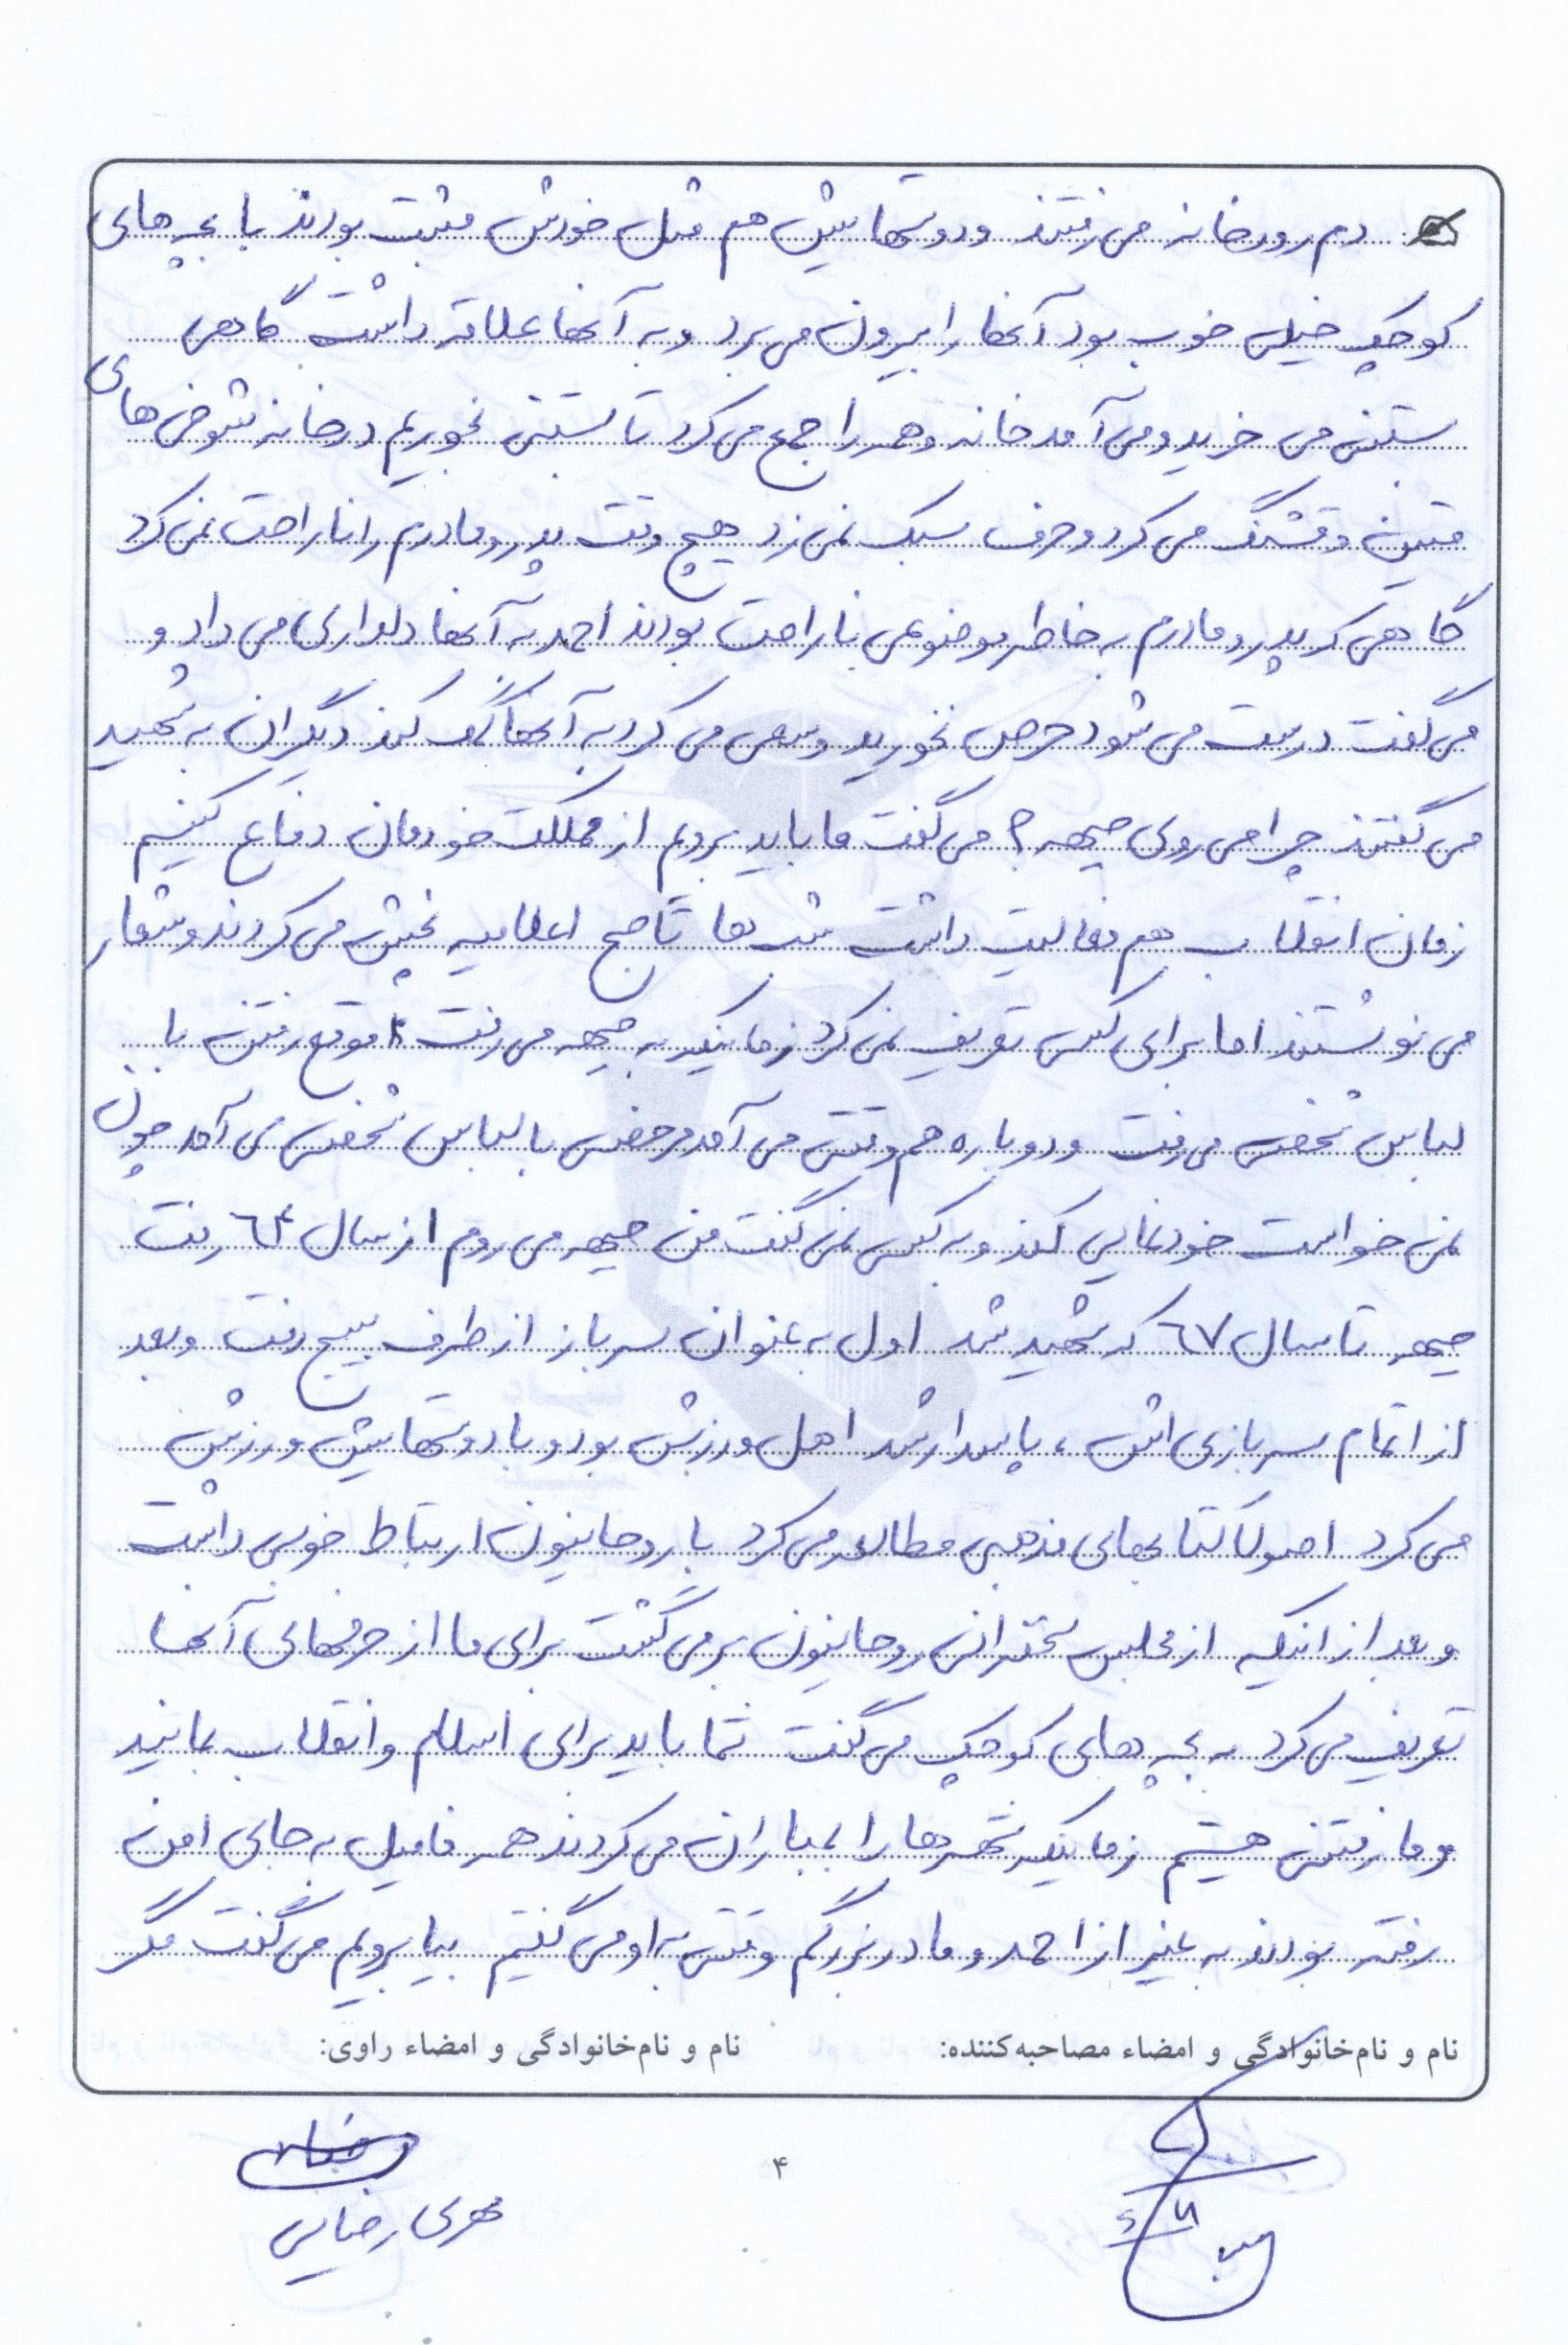 دم رودخانه می رفتند و دوستهایش هم مثل خودش مثبت بودند با بچه های
کوچک خیلی خوب بود آنها را بیرون می برد و به آنها علاقه داشت گاهی
بستنی می خرید و می آمد خانه و همه را جمع می کرد تا بستنی بخوریم در خانه شوخی های
متین و قشنگ می کرد و حرف سبک نمی زد هیچ وقت پدر و مادرم را ناراحت نمی کرد
گاهی که پدر و مادرم به خاطر موضوعی ناراحت بودند احمد به آنها دلداری می داد و
می گفت درست می شود حرص نخورید و سعی می کرد به آنها کمک کند دیگران به شهید
می گفتند چرا می روی جبهه؟ می گفت ما باید برویم از مملکت خودمان دفاع کنیم
زمان انقلاب هم فعالیت داشت شب ها تا صبح اعلامیه پخش می کردند و شعار
می نوشتند اما برای کسی تعریف نمی کرد زمانیکه به جبهه می رفت موقع رفتن با
لباس شخصی می رفت و دوباره هم وقتی می آمد مرخصی با لباس شخصی می آمد چون
نمی خواست خودنمایی کند و به کسی نمی گفت من جبهه می روم از سال ٦٤ رفت
جبهه تا سال ٦٧ که شهید شد اول به عنوان سرباز از طرف بسیج رفت و بعد
از اتمام سربازی اش، پاسدار شد اهل ورزش بود و با دوستهایش ورزش
می کرد اصولاً کتابهای مذهبی مطالعه می کرد با روحانیون ارتباط خوبی داشت
و بعد از اینکه از مجلس سخنرانی روحانیون برمی گشت برای ما از حرفهای آنها
تعریف می کرد به بچه های کوچک می گفت شما باید برای اسلام و انقلاب بمانید
و ما رفتنی هستیم زمانیکه شهرها را بمباران می کردند همه فامیل به جای امن
رفته بودند به غیر از احمد و مادربزرگم وقتی به او می گفتیم بیا برویم می گفت مگر
نام و نام‌خانوادگی و امضاء مصاحبه‌کننده: نام و نام‌خانوادگی و امضاء راوی:
۴
مهری رضایی